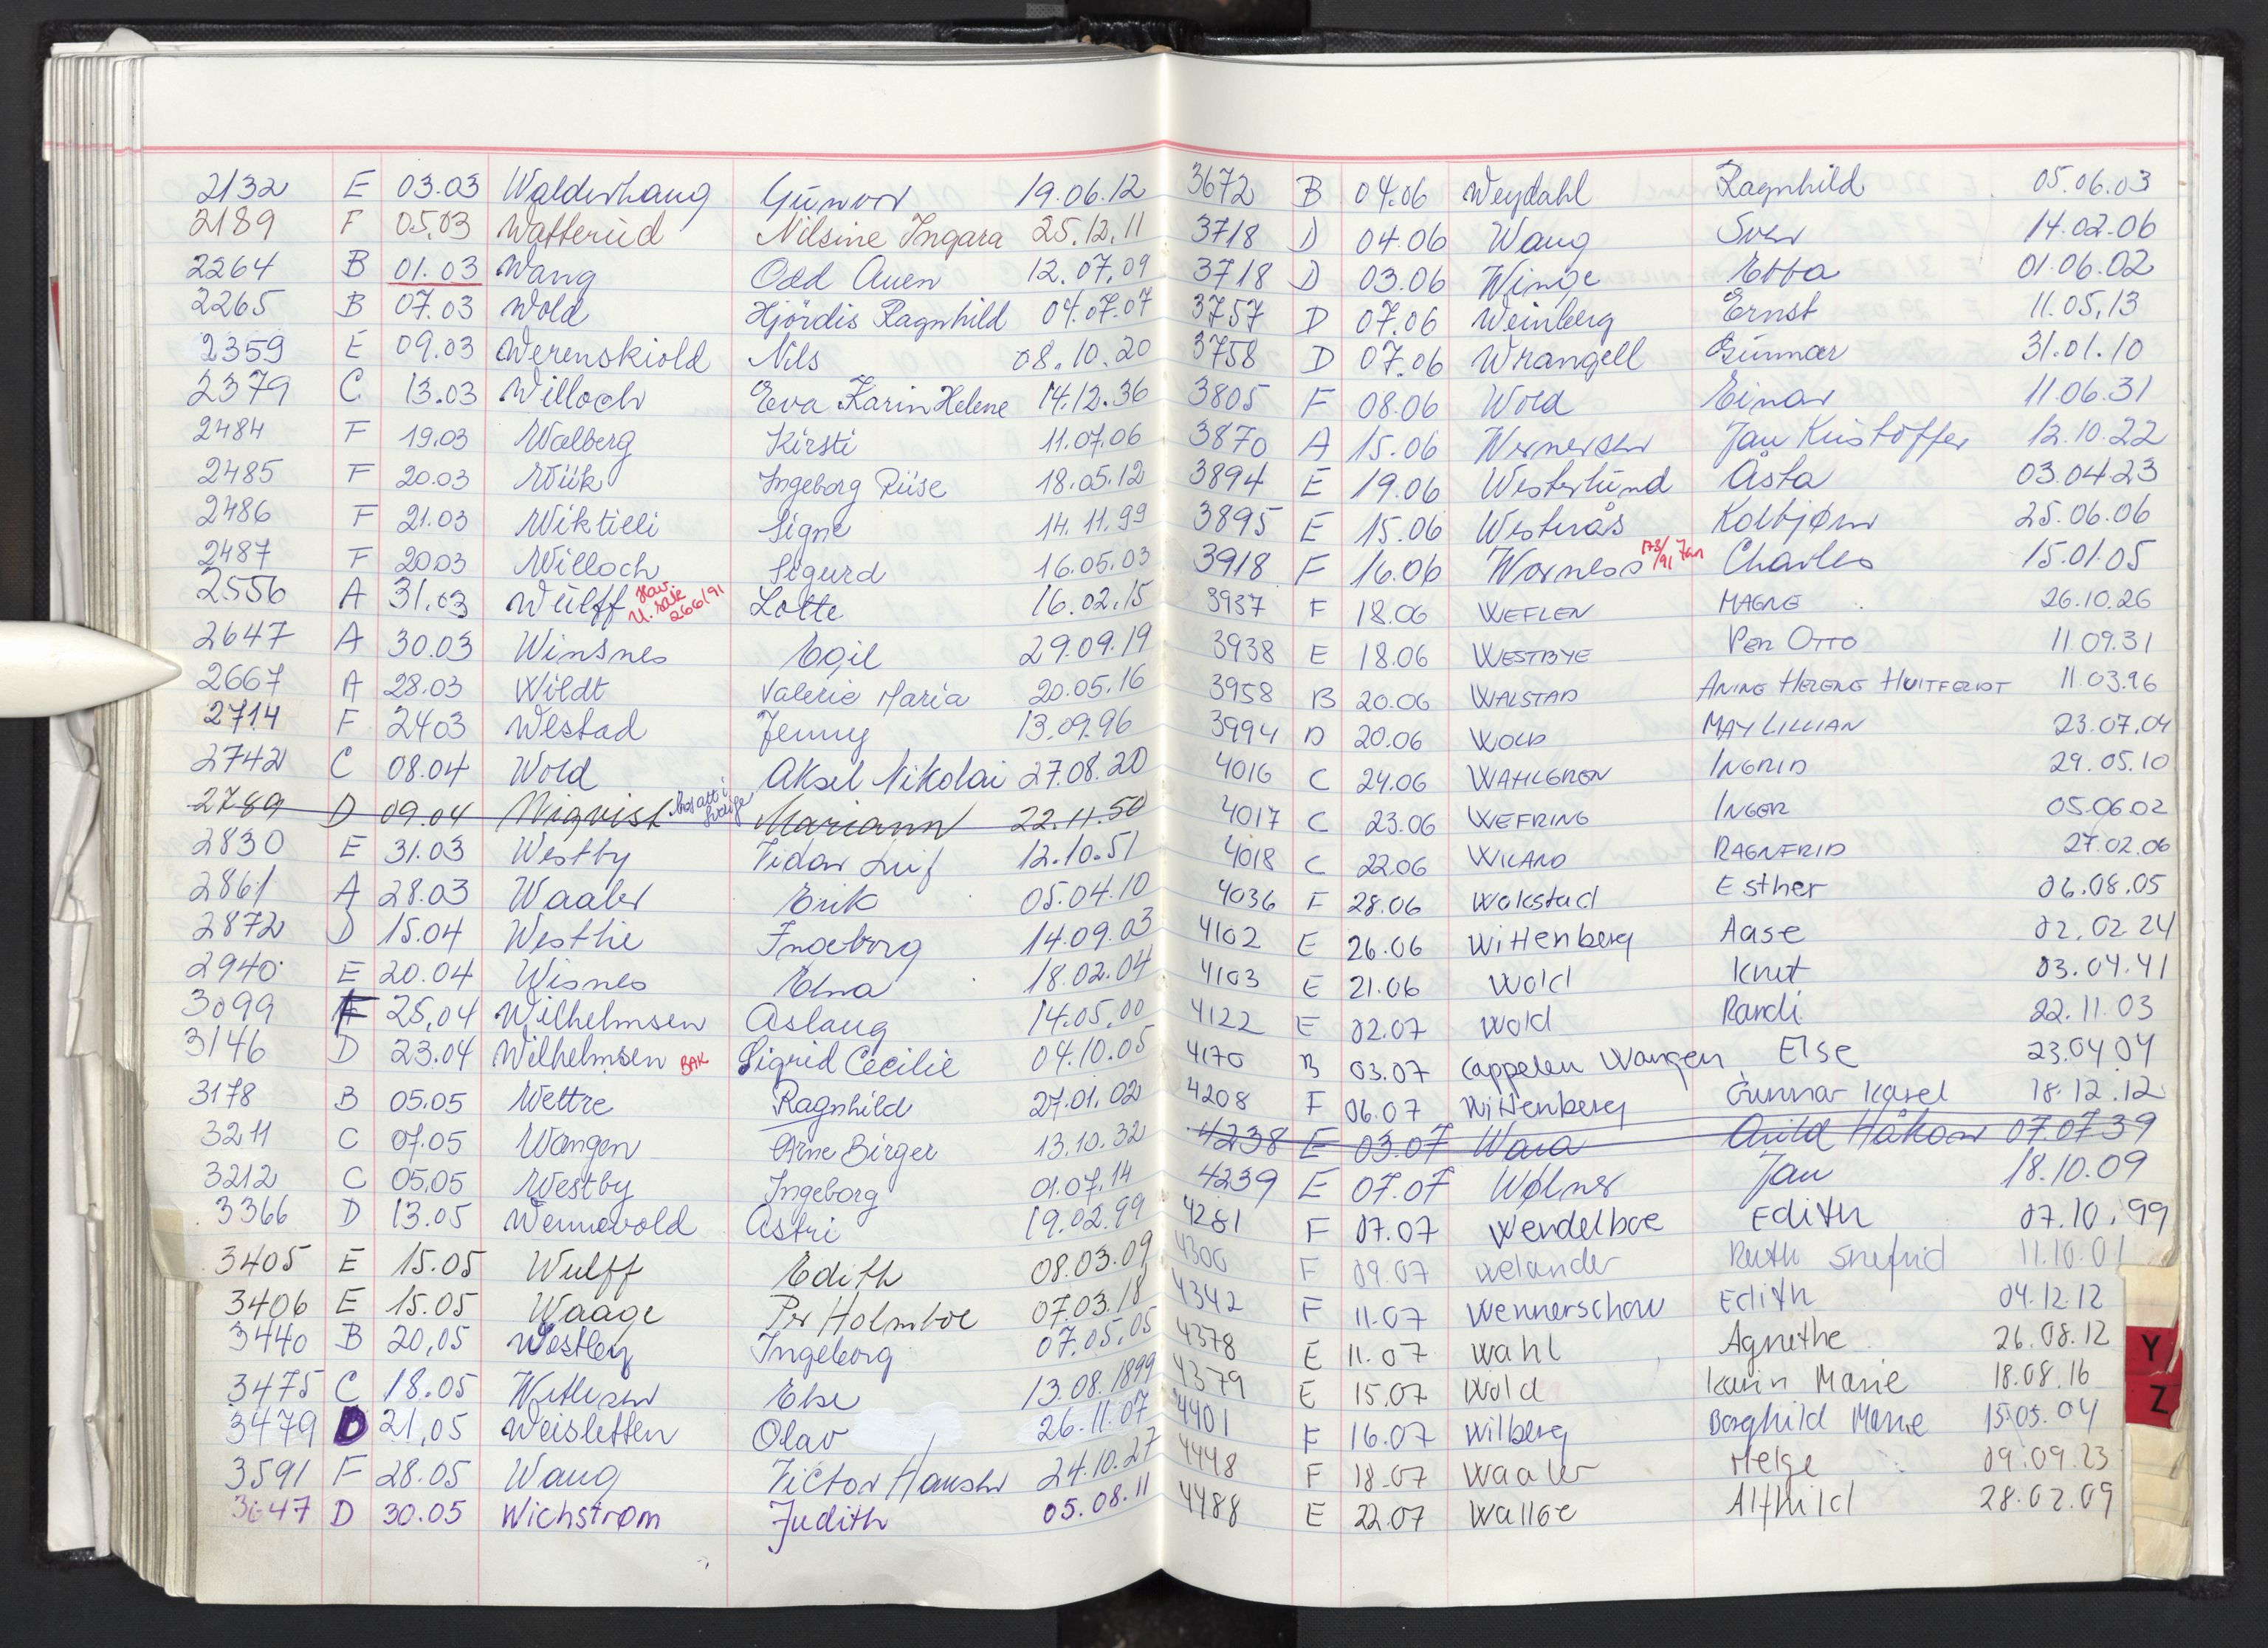 2132 E 03.03 Walderhaug Gunvor 19.06.12
2189 F 05.03 Watterud Nilsine Ingara 25.12.11
2264 B 01.03 Wang Odd Auen 12.07.09
2265 B 07.03 Wold Hjördis Ragnhild 04.07.07
2359 E 09.03 Werenskiold Nils 08.10.20
2379 C 13.03 Willoch Eva Karin Helene 14.12.36
2484 F 19.03 Walberg Kirsti 11.07.06
2485 F 20.03 Wiik Ingeborg Riise 18.05.12
2486 F 21.03 Signe 14.11.99
2487 F 20.03 Willoch Sigurd 16.05.03
2556 A 31.03 Wulff U. sak 266/91 Lotte 16.02.15
2647 A 30.03 Winsnes Egil 29.09.19
2667 A 28.03 Wildt Valerie Maria 20.05.16
2714 F 2403 Westad Jenny 13.09.96
2742 C 08.04 Wold Aksel Nikolai 27.08.20
2789 D 09.04 Wiqvist bosatt i Sverige Mariann 22.11.50
2830 E 31.03 Westby Vidar Leif 12.10.51
2861 A 28.03 Waaler Erik 05.04.10
2872 D 15.04 Westlie Ingeborg 14.09.03
2940 E 20.04 Wisnes Elna 18.02.04
3099 F 25.04 Wilhelmsen Aslaug 14.05.00
3146 D 23.04 Wilhelmsen BAK Sigrid Cecilie 04.10.05
3178 B 05.05 Wettre Ragnhild 27.01.02
3211 C 07.05 Wangen Arne Birger 13.10.32
3212 C 05.05 Westby Ingeborg 01.07.14
3366 D 13.05 Wennevold Astri 19.02.99
3405 E 15.05 Wulff Edith 08.03.09
3406 E 15.05 Waage Per Holmboe 07.03.18
3440 B 20.05 Westley Ingeborg 07.05.05
3475 C 18.05 Else 13.08.1899
3479 D 21.05 Weisletten Olav 26.11.07
3591 F 28.05 Wang Victor Hansen 24.10.27
3647 D 30.05 Wichstrøm Judith 05.08.11
3672 B 04.06 Weydahl Ragnhild 05.06.03
3718 D 04.06 Wang Sven 14.02.06
3718 D 03.06 Winge Ebba 01.06.02
3757 D 07.06 Weinberg Ernst 11.05.13
3758 D 07.06 Wrangell Gunnar 31.01.10
3805 F 08.06 Wold Einar 11.06.31
3870 A 15.06 Wernersen Jan Kristoffer 12.10.22
3894 E 19.06 Westerlund Åsta 03.04.23
3895 E 15.06 Westerås Kolbjørn 25.06.06
3918 F 16.06 Worness 173/91 Jan Charles 15.01.05
3937 F 18.06 WEFLEN MAGNE 26.10.26
3938 E 18.06 WESTBYE PER OTTO 11.09.31
3958 B 20.06 WALSTAD ANINE HELENE HUITFELDT 11.03.96
3994 D 20.06 WOLD MAY LILLIAN 23.07.04
4016 C 24.06 WAHLGREN INGRID 29.05.10
4017 C 23.06 WEFRING INGER 05.06.02
4018 C 22.06 WILAND RAGNFRID 27.02.06
4036 F 28.06 Wakstad Esther 06.08.05
4102 E 26.06 Wittenberg Aase 02.02.24
4103 E 21.06 Wold Knut 03.04.41
4122 E 02.07 Wold Randi 22.11.03
4170 B 03.07 Cappelen Wangen Else 23.04.04
4208 F 06.07 Wittenberg Gunnar Karel 18.12.12
4238 E 03.07 Wara Arild Håkon 07.07.39
4239 E 07.07 Wølner Jan 18.10.09
4281 F 07.07 Wendelboe Edith 07.10.99
4300 F 09.07 Welander Ruth Snefrid 11.10.01
4342 F 11.07 Wennerschou Edith 04.12.12
4378 E 11.07 Wahl Agnethe 26.08.12
4379 E 15.07 Wold Karin Marie 18.08.16
4401 F 16.07 Wilberg Borghild Marie 15.05.04
4448 F 18.07 Waaler Helge 09.09.23
4488 E 22.07 Walløe Alfhild 28.02.09
Y
Z